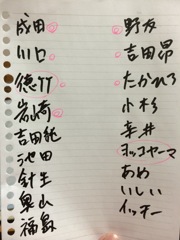 成田
川口
徳竹
岩崎
吉田純
池田
針生
奥山
福島
野友
吉田昂
たかひろ
小杉
幸井
ヨッコヤーマ
あめ
いしい
イッチー